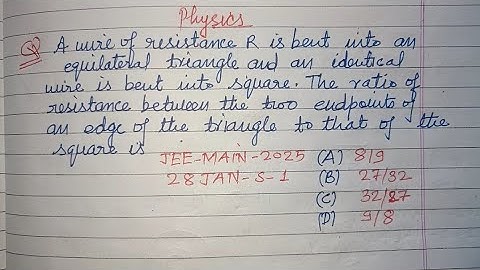 Physics
Q A wire of resistance R is bent into an
equilateral triangle and an identical
wire is bent into square. The ratio of
resistance between the two endpoints of
an edge of the triangle to that of the
square is
JEE-MAIN-2025 (A) 8/9
28 JAN-S-1 (B) 27/32
(C) 32/27
(D) 9/8